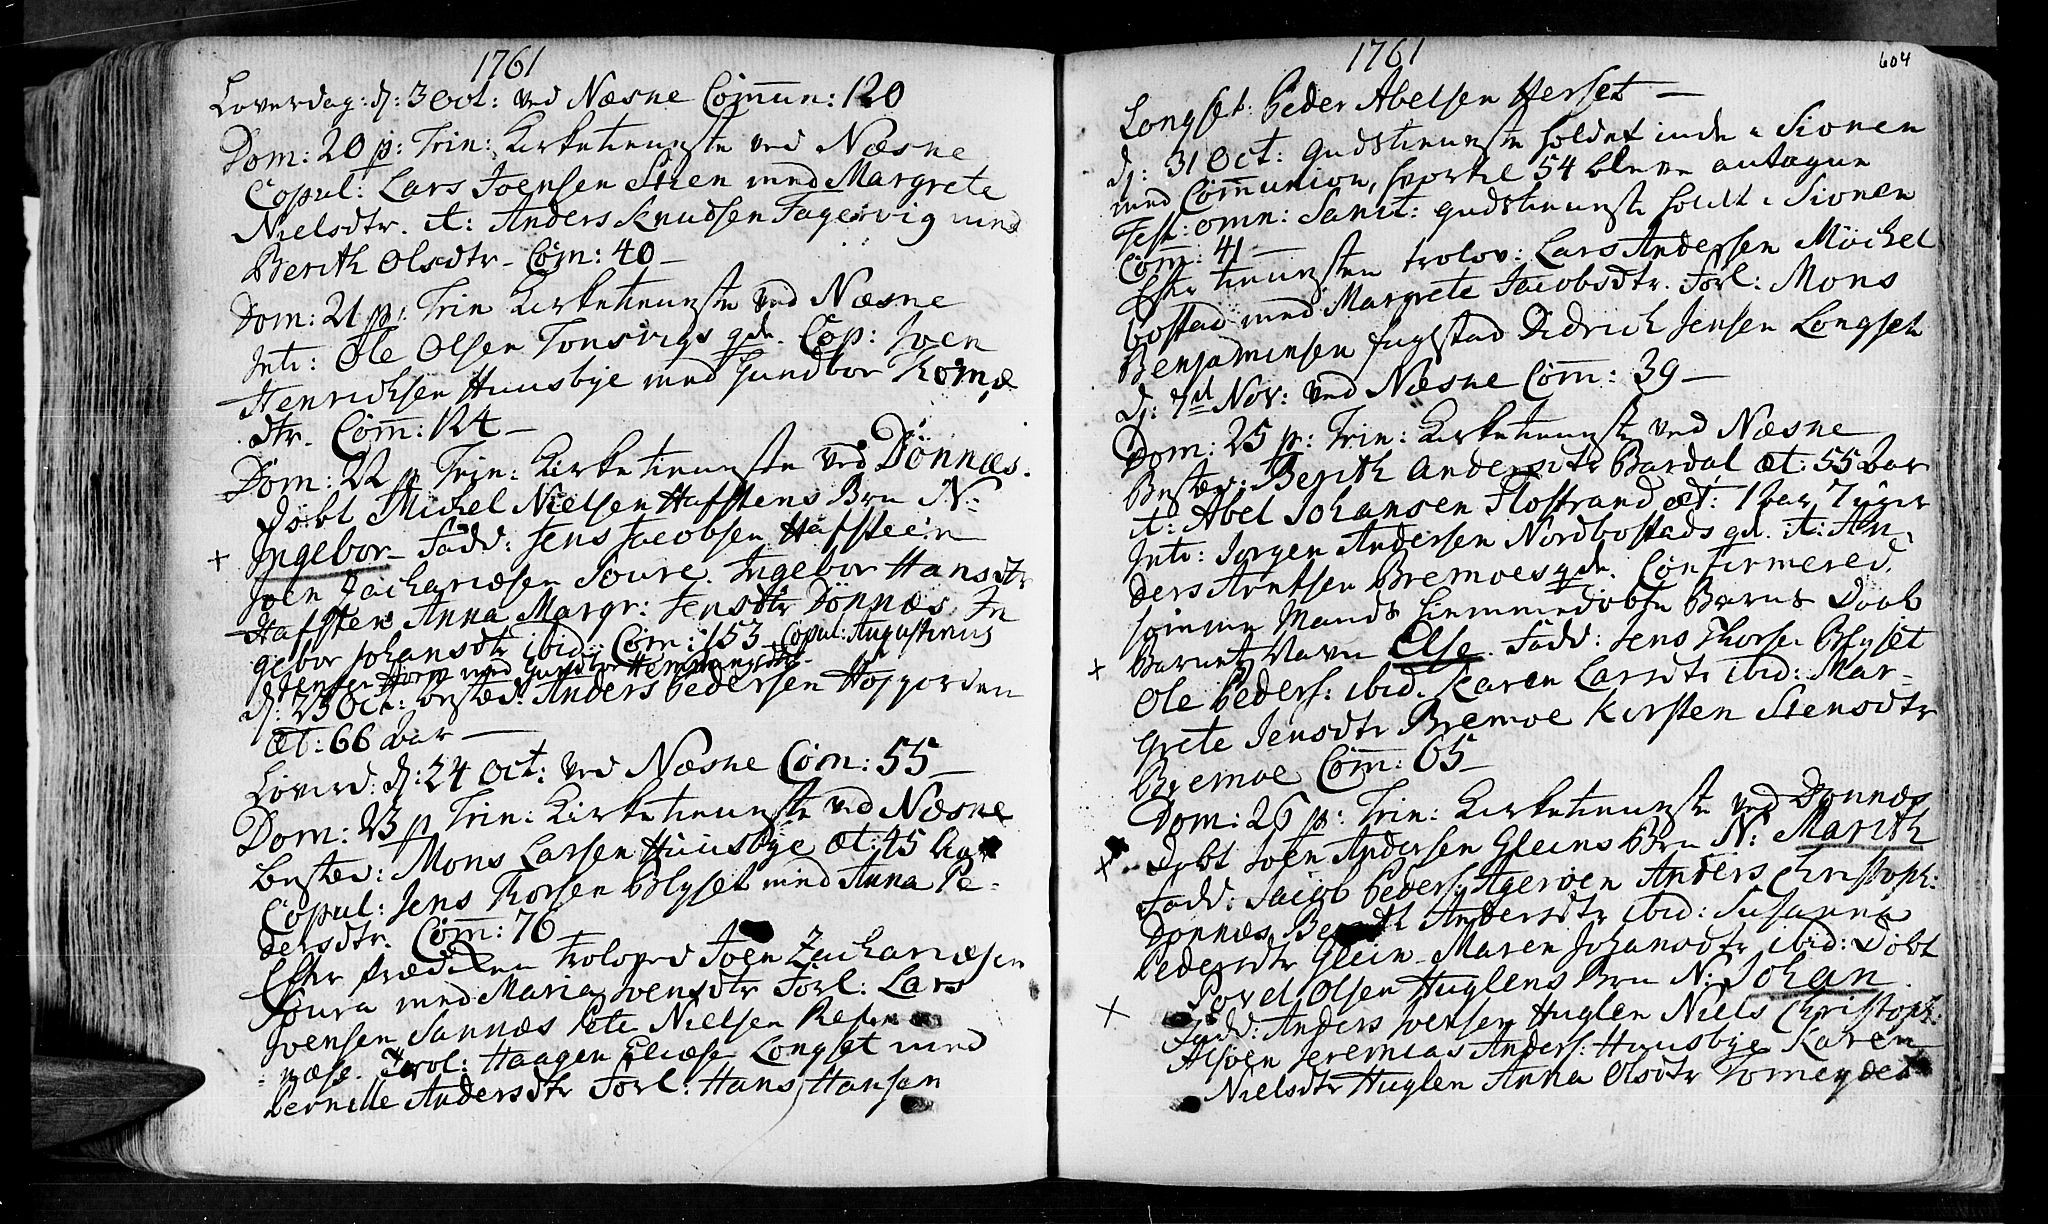 1761
Loverdag: d: 3 Oct: ved Næsne Com̄un: 120
Dom: 20 p: Trin: Kirketieneste ved Næsne
Copul: Lars Joensen Steen med Margrete
Nielsdtr. it: Anders Knudsen Fagervig med
Berith Olsdtr - Com̄: 40 -
Dom: 21 p: Trin Kirketieneste ved Næsne
Intr: Ole Olsen Tonsvigs qde. Cop: Joen
Henrichsen Huusbye med Gundbor Thomæ
dtr. Com̄: 124 -
Dom: 22 p Trin: Kirketieneste ved Dönnæs.
Döbt Michel Nielsen Hafstens Brn N:
+ Ingebor - Fadd: Jens Jacobsen Hafsteen
Joen Zachariæsen Soure. Ingebor Hansdtr
Hafsten Anna Margr: Jensdtr Dönnæs In
gebor Johansdtr ibid: Com̄: 153 - Copul: Augustinus
Jensen Horn med Gundbor Hemmingsdtr.
d: 23 Oct: bested: Anders Pedersen Höjgorden
æt: 66 aar -
Löverd: d: 24 Oct: ved Næsne Com̄: 55 -
Dom: 23 p Trin: Kirketieneste ved Næsne
Bested: Mons Larsen Huusbye æt: 45 aar
Copul: Jens Thorsen Blyset med Anna Pe-
dersdtr. Com̄: 76
Efter Prædiken troloved Joen Zachariæsen
Soura med Maria Joensdtr Forl: Lars
Joensen Sannæs Peter Nielsen Refs
næse. Trol: Haagen Eliæse Longset med
Pernille Andersdtr Forl: Hans Hansen
1761
604
Longset. Peder Abelsen Herset -
d: 31 Oct: gudstieneste holdet inde i Sionen
med Com̄union, hvortil 54 bleve antagne
Fest: omn: Sanct: gudstieneste holdt i Sionen
Com̄: 41 -
Efter tienesten trolov: Lars Andersen Möchel
bostad med Margrete Jacobsdtr. Forl: Mons
Benjaminsen Fuglstad Didrich Jensen Longset
d: 7de Nov: ved Næsne Com̄: 39 -
Dom: 25 p: Trin: Kirketieneste ved Næsne
Bested: Berith Andersdtr Bardal æt: 55 aar
it: Abel Johansen Flostrand æt: 1 aar 7 uger
Intr: Jørgen Andersen Nordbostads qd. it: An-
ders Arntsen Bremoes qde. Confirmered
samme Mands hiemmedöbte Barns Daab
+ Barnets Navn Else. Fadd: Jens Thorse Blyset
Ole Peders: ibid. Karen Larsdtr ibid: Mar-
grete Jensdtr Bremoe Kirsten Stensdtr
Bremoe Com̄: 65 -
Dom: 26 p: Trin: Kirketieneste ved Dönnæs
+ Döbt Joen Andersen Gleins Brn N: Marith
Fadd: Jacob Peders: Ageröen Anders Christoph:
Dönnæs Berith Andersdtr ibid: Susanna
Pedersdtr Glein - Maren Johansdtr ibid: Döbt
Povel Olsen Huglens Brn N: Johan.
+ Fadd: Anders Joensen Huglen Niels Christoph:
Alsöen Jeremias Anders: Huusbye Karen
Nielsdtr Huglen Anna Olsdtr Tomeydet